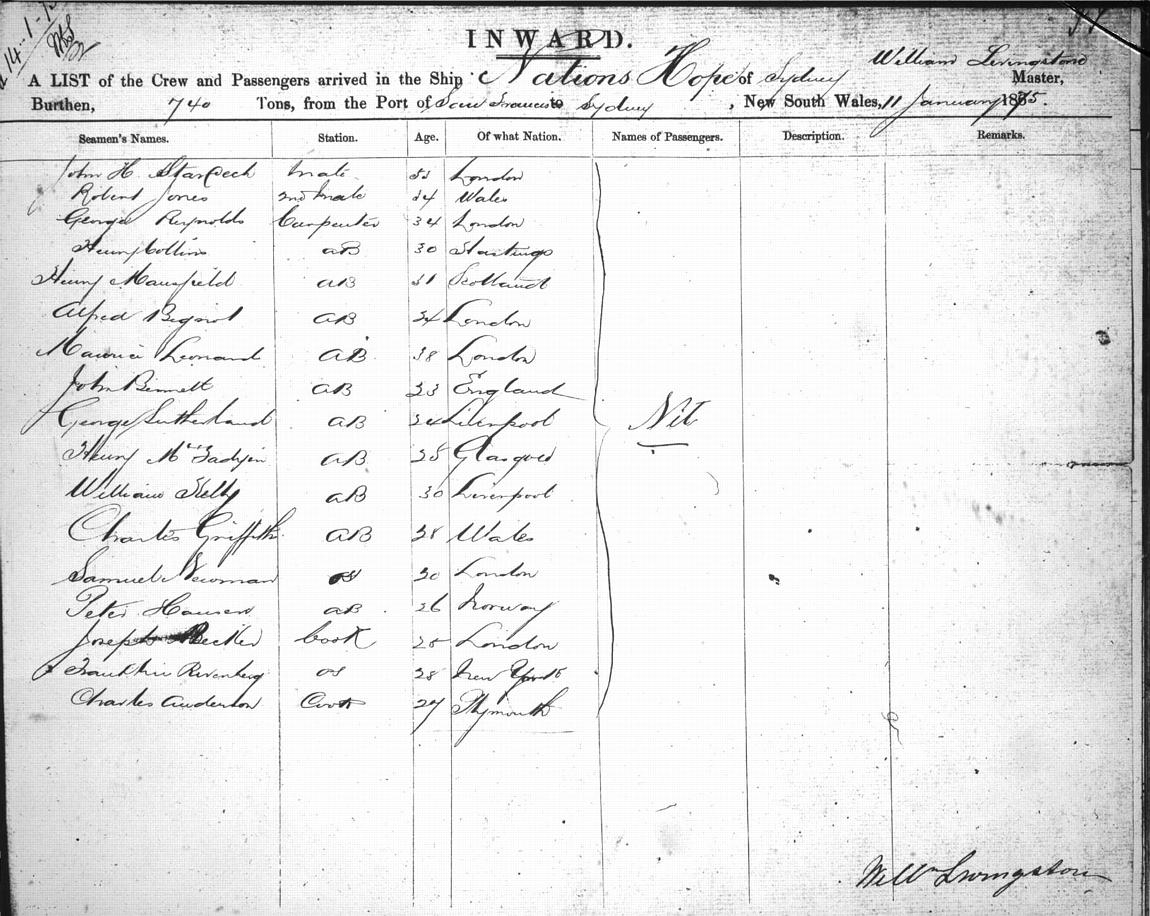 14-1-
INWARD.
William Livingstone
A LIST of the Crew and Passengers arrived in the Ship Nations Hope of Sydney Master,
Burthen, 740 Tons, from the Port of San Francisco to Sydney, New South Wales, 11 January 1875.
Seamen's Names. Station. Age. Of what Nation. Names of Passengers. Description. Remarks.
John H. Mate London
Robert Jones 2nd Mate Wales
George Reynolds Carpenter 34 London
Henry Collins AB 30 Hastings
Henry Mansfield AB 31 Scotland
Alfred AB 24 London
Maurice Leonard AB 38 London
John Bennett AB 23 England
George Sutherland AB Liverpool
Nil
Henry AB 28 Glasgow
William Kelly AB 30 Liverpool
Charles Griffith AB 28 Wales
Samuel Newman OS 20 London
Peter Hansen AB 26 Norway
Joseph Becker Cook 25 London
Franklin Rivenberg OS 28 New York
Charles Anderson Cook 27 Plymouth
Willm Livingston